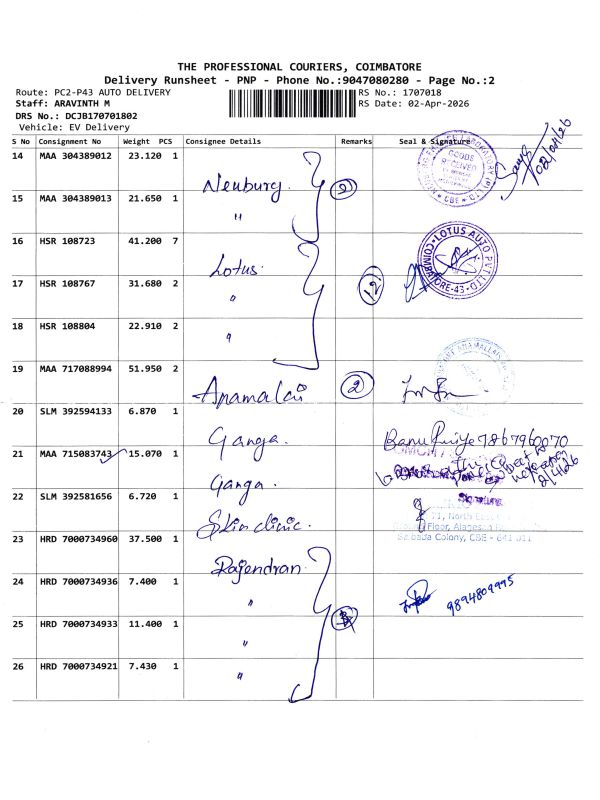 THE PROFESSIONAL COURIERS, COIMBATORE
Delivery Runsheet - PNP - Phone No.:9047080280 - Page No.:2
Route: PC2-P43 AUTO DELIVERY
RS No.: 1707018
Staff: ARAVINTH M
RS Date: 02-Apr-2026
DRS No.: DCJB170701802
Vehicle: EV Delivery
S No Consignment No Weight PCS Consignee Details Remarks Seal & Signature
02/04/26
14 MAA 304389012 23.120 1 Neuburg 2
GOODS RECEIVED
CBE
15 MAA 304389013 21.650 1 "
16 HSR 108723 41.200 7 Lotus
LOTUS AUTO PVT LTD COIMBATORE-43
17 HSR 108767 31.680 2 " 12
18 HSR 108804 22.910 2 "
19 MAA 717088994 51.950 2 Anamalai 2
20 SLM 392594133 6.870 1 Ganga
Banu Priye 9867960070
21 MAA 715083743 15.070 1 Ganga
2/4/26
22 SLM 392581656 6.720 1 Skin clinic
Signature
Floor, Alagesan
Saibada Colony, CBE - 641 011
23 HRD 7000734960 37.500 1 Rajendran
24 HRD 7000734936 7.400 1 "
9894809995
25 HRD 7000734933 11.400 1 "
26 HRD 7000734921 7.430 1 "